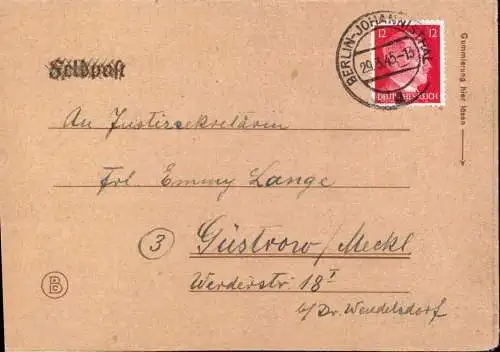 Feldpost
BERLIN-JOHANNISTHAL
29.3.45-15
12 12
DEUTSCHES REICH
Gummierung hier lösen
An Justizsekretärin
Frl. Emmy Lange
3
Güstrow/Meckl
Werderstr 18 I
b/Dr. Wendelsdorf
B